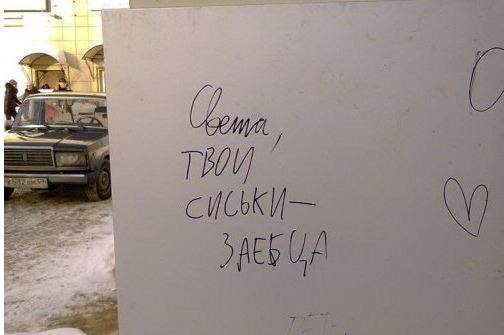 Света,
ТВОИ
СИСЬКИ —
ЗАЕБЦА